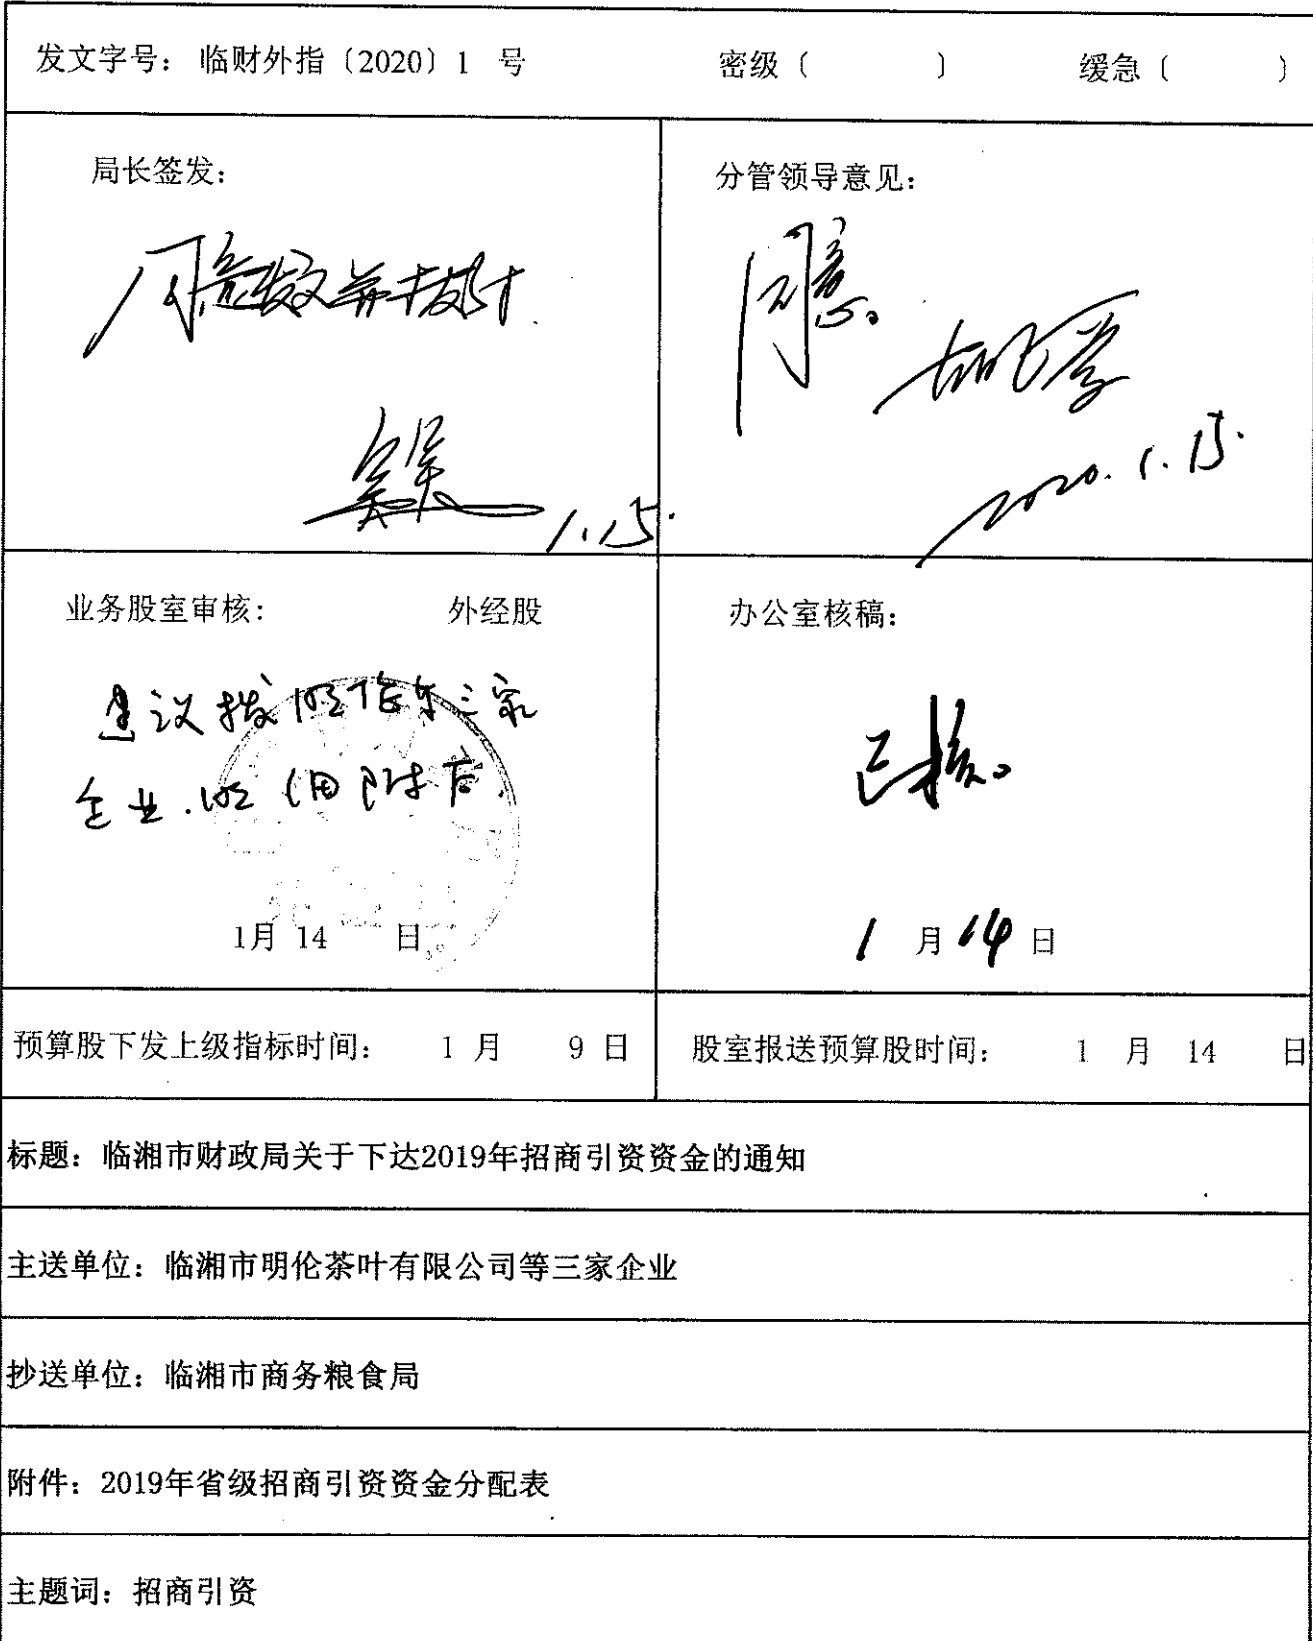 发文字号： 临财外指〔2020〕1 号 密级（ ） 缓急（ ）
局长签发：
同意发文并拨付
1.15.
分管领导意见：
同意。
2020.1.15.
业务股室审核： 外经股
建议拨 三家
企业. 附后.
1月 14 日
办公室核稿：
已核。
1 月 14 日
预算股下发上级指标时间： 1 月 9 日
股室报送预算股时间： 1 月 14 日
标题：临湘市财政局关于下达2019年招商引资资金的通知
主送单位：临湘市明伦茶叶有限公司等三家企业
抄送单位：临湘市商务粮食局
附件：2019年省级招商引资资金分配表
主题词：招商引资